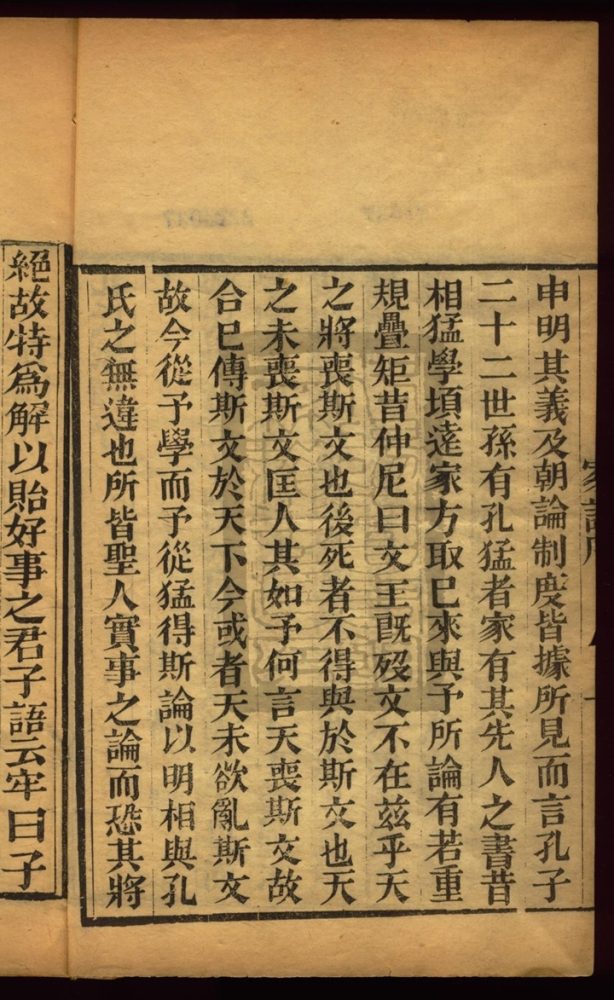 申明其義及朝論制度皆據所見而言孔子
二十二世孫有孔猛者家有其先人之書昔
相猛學頃還家方取已來與予所論有若重
規疊矩昔仲尼曰文王旣歿文不在茲乎天
之將喪斯文也後死者不得與於斯文也天
之未喪斯文匡人其如予何言天喪斯文故
合已傳斯文於天下今或者天未欲亂斯文
故今從予學而予從猛得斯論以明相與孔
氏之無違也所皆聖人實事之論而恐其將
絕故特爲解以貽好事之君子語云牢曰子